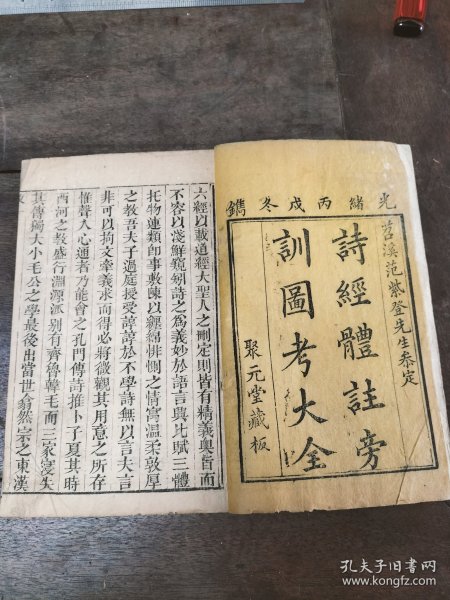 光緒丙戌冬鐫
苕溪范紫登先生叅定
詩經體註旁
訓圖考大全
聚元堂藏板
六經以載道經大聖人之刪定則皆有精義奧旨而
不容以淺鮮窺矧詩之為義妙於語言與比賦三體
托物連類卽事敷陳以纏綿悱惻之情寓溫柔敦厚
之教吾夫子過庭授受諄諄於不學詩無以言夫言
非可以拘文牽義求而得必將微觀其用意之所存
惟聲入心通者乃能會之孔門傳詩推卜子夏其時
西河之教盛行淵源派别有齊魯韓毛而三家寖失
其傳獨大小毛公之學最後出當世翕然宗之東漢
孔夫子旧书网
www.kongfz.com